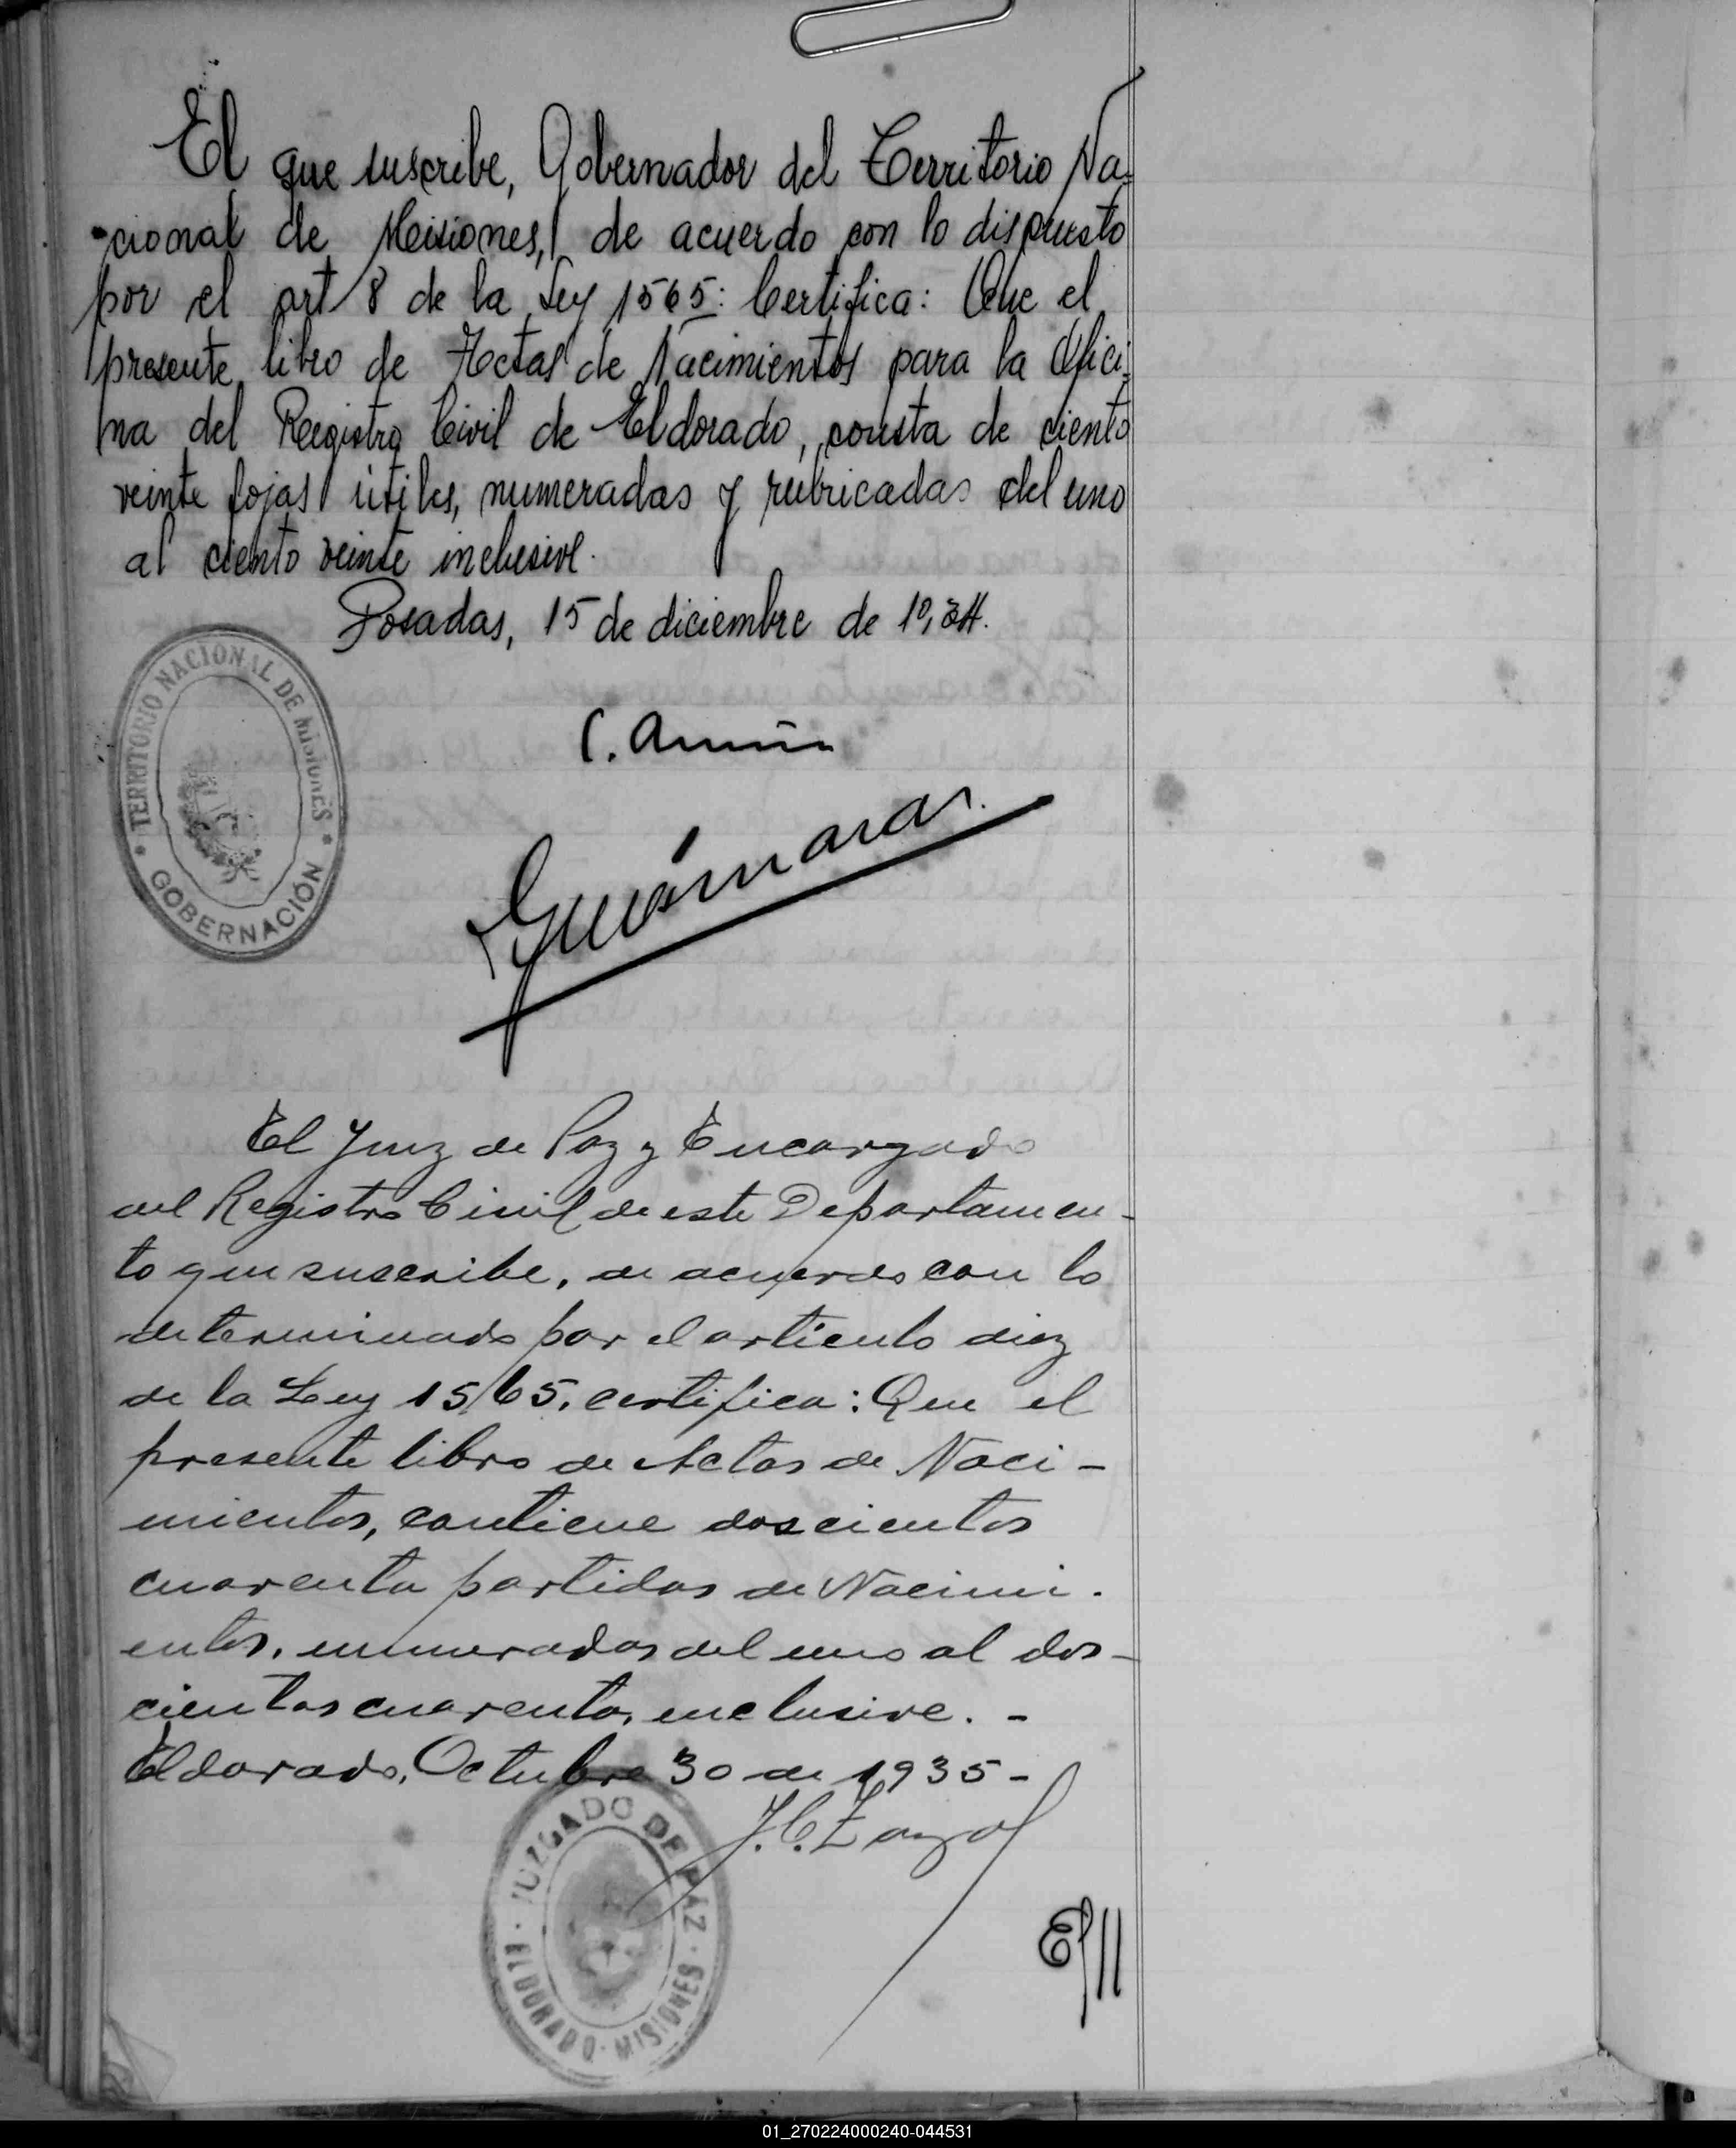 El que suscribe, Gobernador del Territorio Na-
cional de Misiones, de acuerdo con lo dispuesto
por el art 8 de la Ley 1565: Certifica: Que el
presente libro de Actas de Nacimientos para la Ofici-
na del Registro Civil de Eldorado, consta de ciento
veinte fojas útiles, numeradas y rubricadas del uno
al ciento veinte inclusive.
Posadas, 15 de diciembre de
TERRITORIO NACIONAL DE MISIONES
GOBERNACIÓN
El Juez de Paz y Encargado
del Registro Civil de este Departamen-
to que suscribe, de acuerdo con lo
determinado por el articulo diez
de la Ley 1565, certifica: Que el
presente libro de Actas de Naci-
mientos, contiene doscientos
cuarenta partidas de Nacimi-
entos, enumeradas del uno al dos-
cientos cuarenta, inclusive. -
Eldorado, Octubre 30 de 1935 -
JUZGADO DE PAZ
ELDORADO - MISIONES
01_270224000240-044531